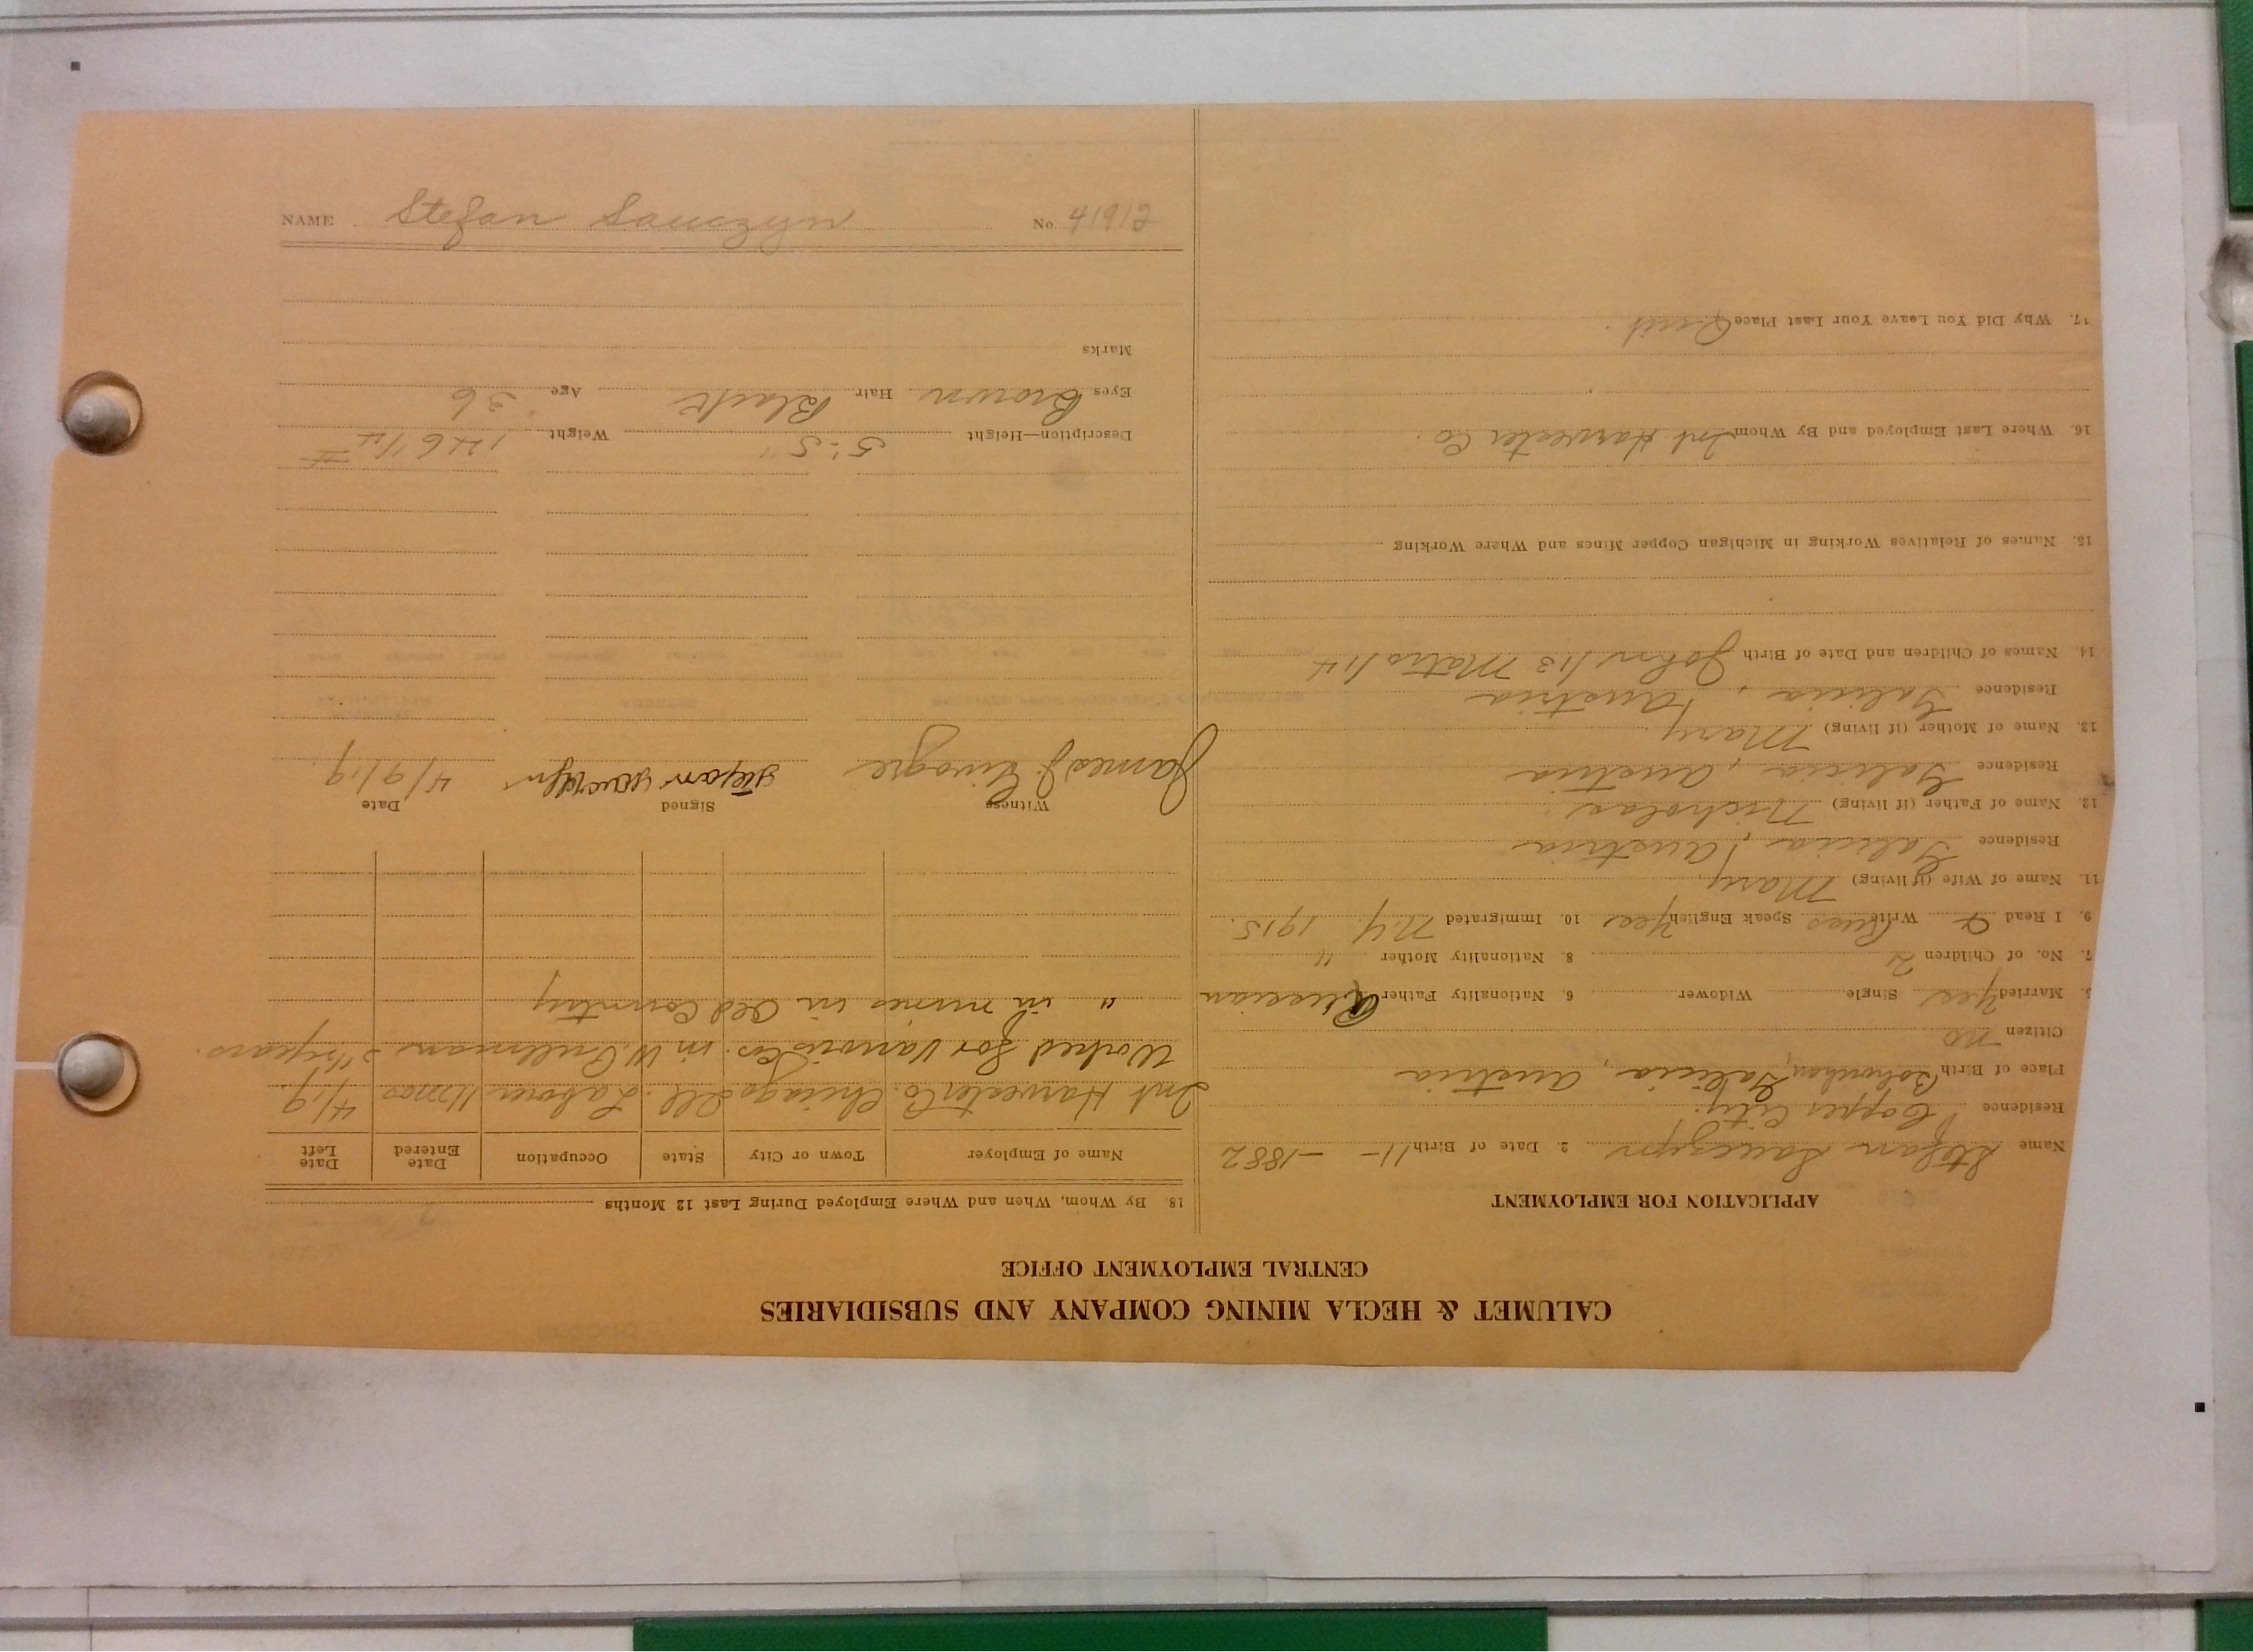 CALUMET & HECLA MINING COMPANY AND SUBSIDIARIES
CENTRAL EMPLOYMENT OFFICE
APPLICATION FOR EMPLOYMENT
Name Stefan Sawczyn 2. Date of Birth 11- -1882
Residence Copper City.
Place of Birth Galicia, Austria
Citizen no
5. Married Yes Single Widower 6. Nationality Father Russian
7. No. of Children 2 8. Nationality Mother "
9. I Read & Write Russ Speak English Yes 10. Immigrated N.Y. 1915.
11. Name of Wife (if living) Mary
Residence Galicia, Austria
12. Name of Father (if living) Nicholas.
Residence Galicia, Austria
13. Name of Mother (if living) Mary
Residence Galicia, Austria
14. Names of Children and Date of Birth John /13 Matro /14
15. Names of Relatives Working in Michigan Copper Mines and Where Working
16. Where Last Employed and By Whom Int Harvester Co.
17. Why Did You Leave Your Last Place Quit.
18 By Whom, When and Where Employed During Last 12 Months
Name of Employer Town or City State Occupation Date Entered Date Left
Int Harvester Co. Chicago Ill. Labour 11 mos 4/19.
Worked for various Cos. in W. Pullman 2 1/2 years.
" in mines in Old Country
Witness Signed Date
James J. Stefan 4/9/19.
Description—Height 5'-5" Weight 146 1/2 #
Eyes Brown Hair Black Age 36
Marks
NAME Stefan Sawczyn No. 41912